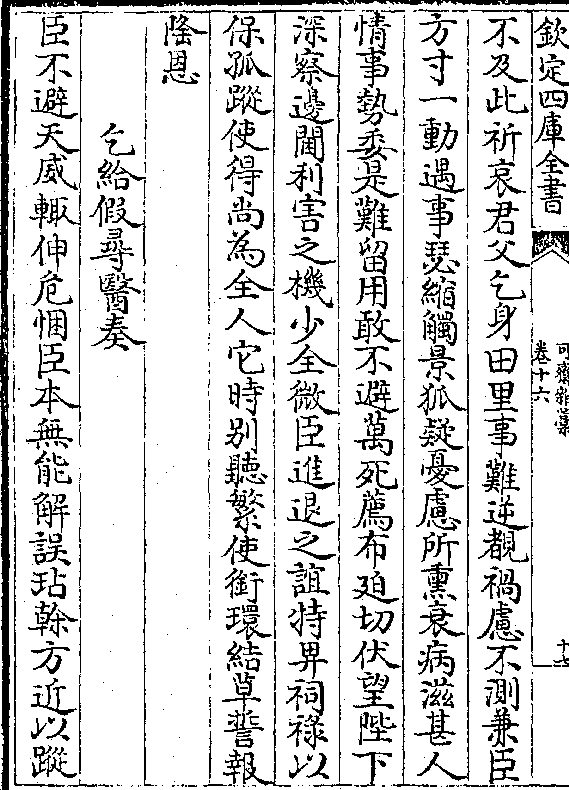 欽定四庫全書
可齋雜藁
卷十六
十七
不及此祈哀君父乞身田里事難逆覩禍慮不測兼臣
方寸一動遇事瑟縮觸景狐疑憂慮所熏衰病滋甚人
情事勢委是難留用敢不避萬死薦布廹切伏望陛下
深察邊閫利害之機少全微臣進退之誼特畀祠祿以
保孤蹤使得尚為全人它時别聽繁使銜環結草誓報
隆恩
乞給假尋醫奏
臣不避天威輙伸危悃臣本無能解誤玷榦方近以蹤